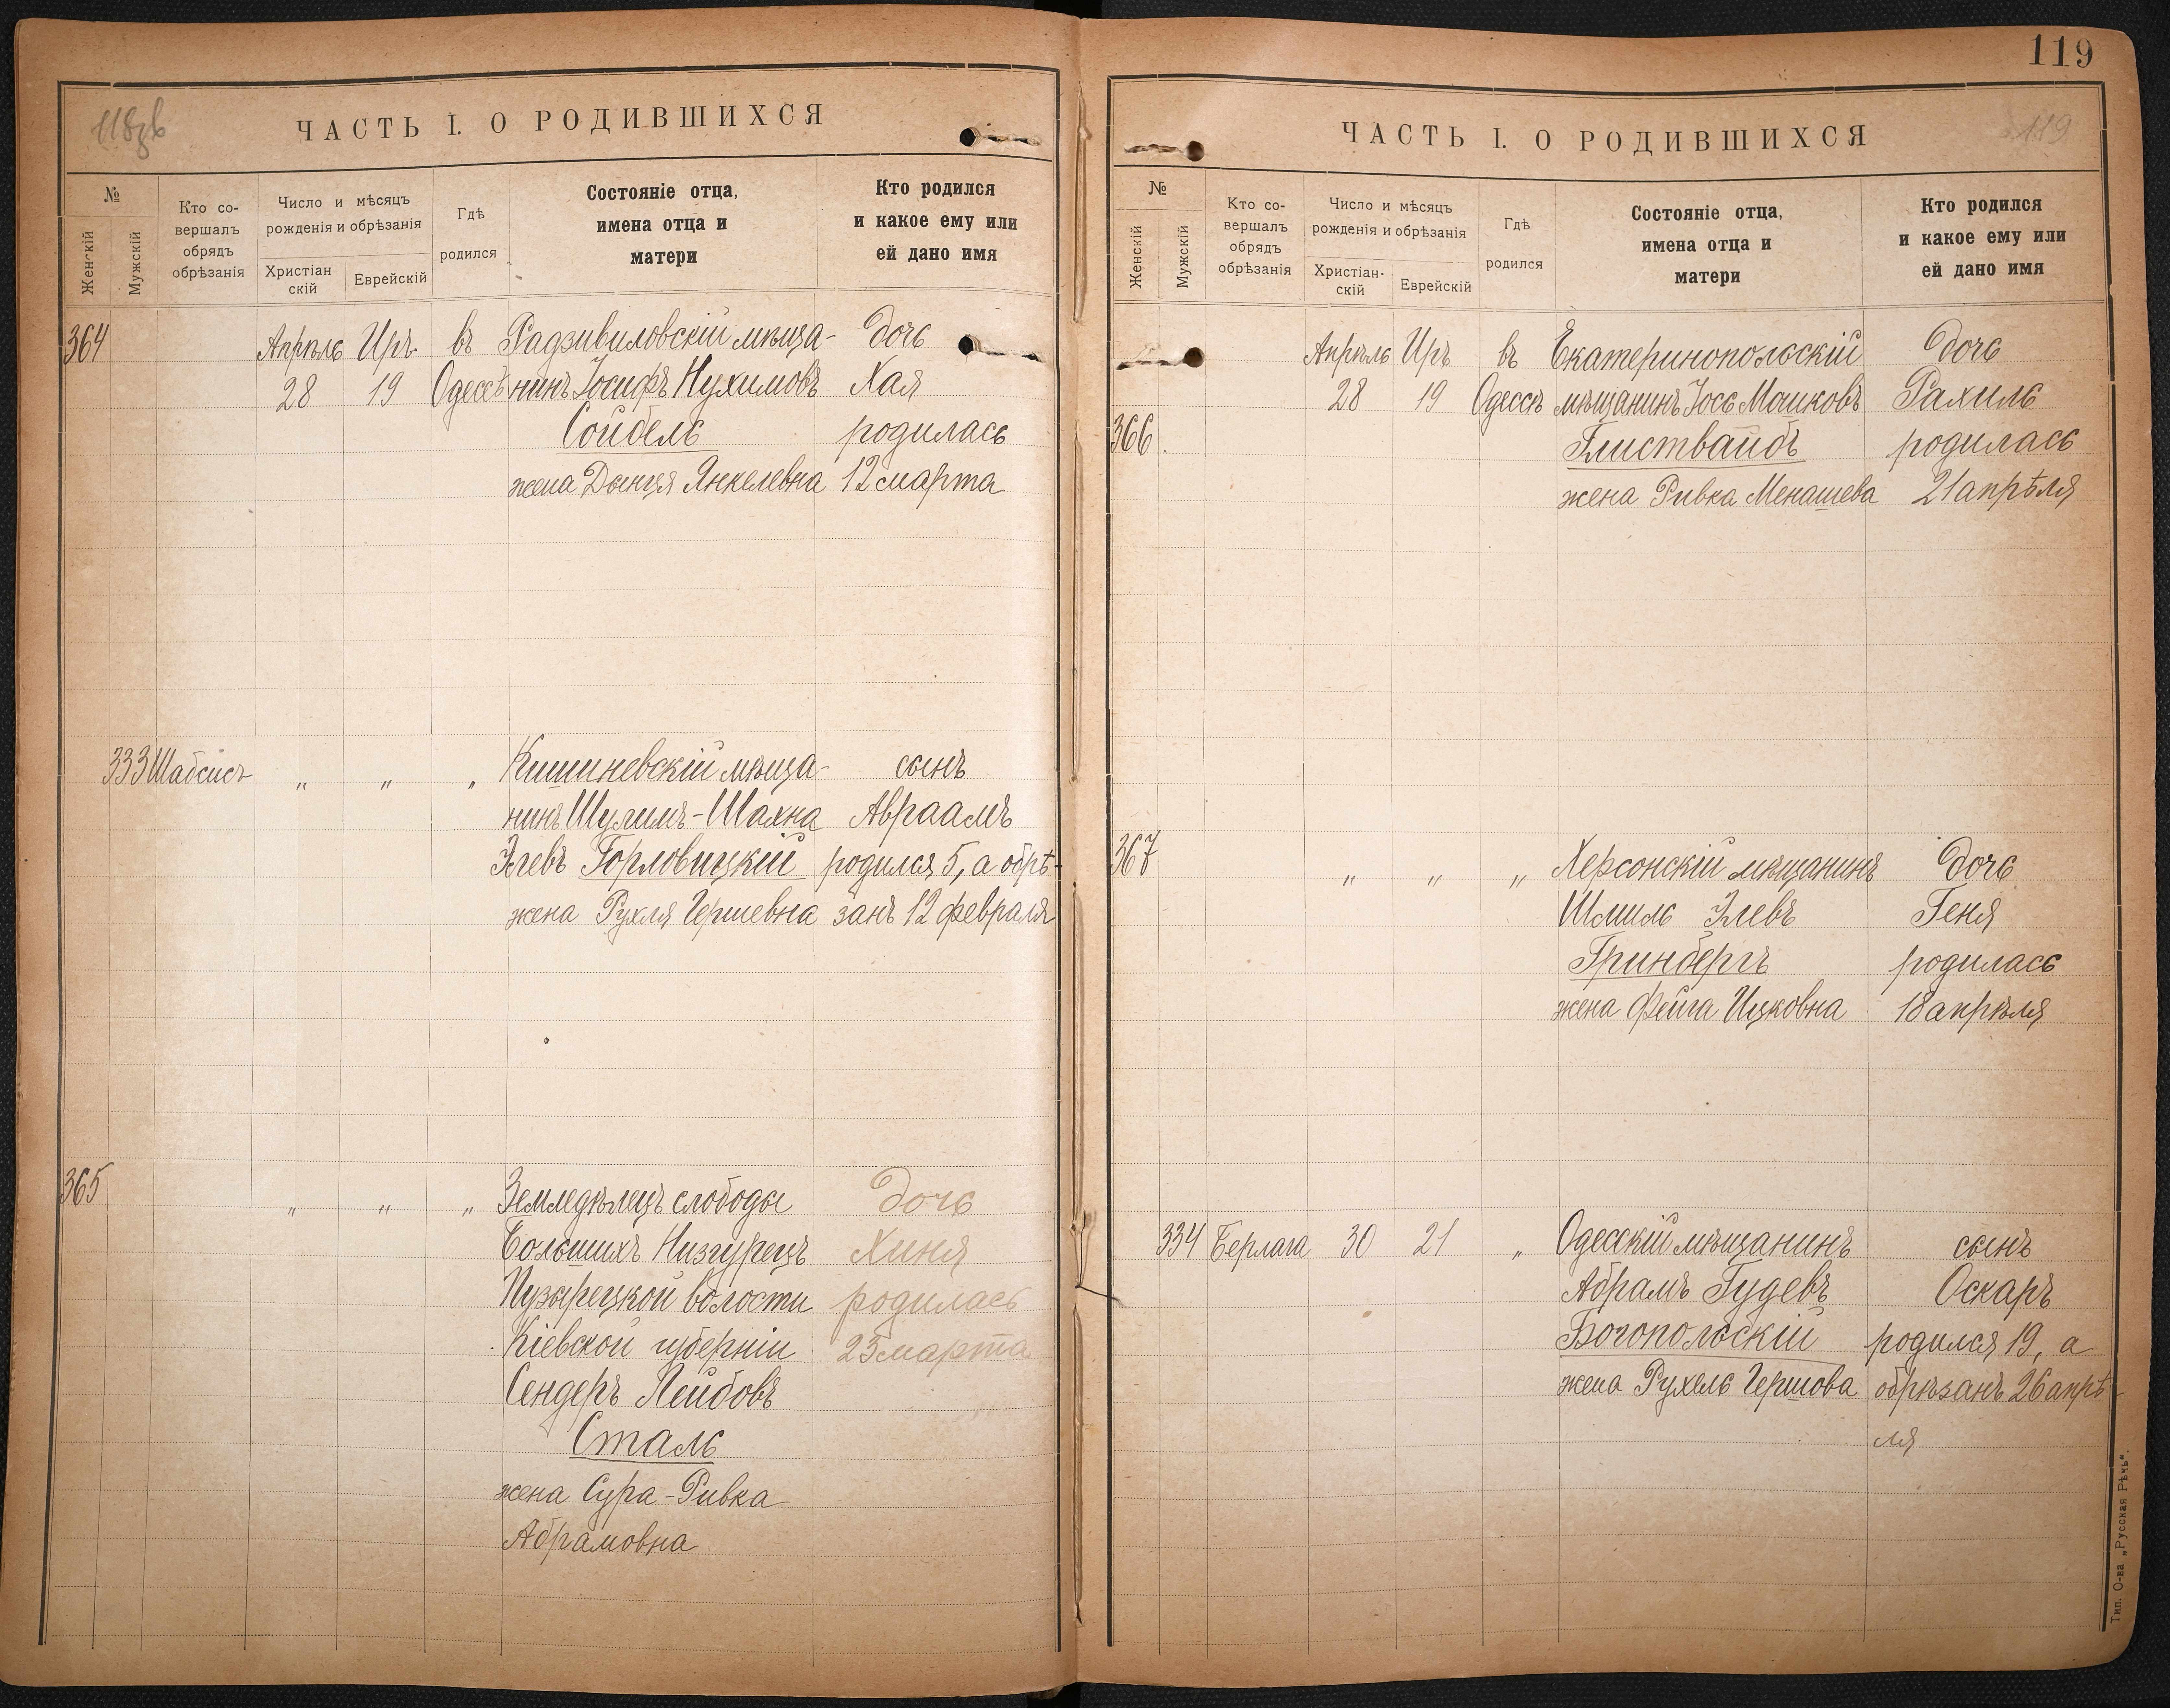 118об
ЧАСТЬ I. О РОДИВШИХСЯ
№
Женскій
Мужскій
Кто со-
вершалъ
обрядъ
обрѣзанія
Число и мѣсяцъ
рожденія и обрѣзанія
Христіан
скій
Еврейскій
Гдѣ
родился
Состояніе отца,
имена отца и
матери
Кто родился
и какое ему или
ей дано имя
364 Апрѣль Иръ въ Радзивиловскій мѣща- дочь
28 19 Одессѣ нинъ Іосифъ Нухимовъ Хая
Сойбель родилась
жена Дынця Янкелевна 12 марта
333 Шабсисъ „ „ „ Кишиневскій мѣща- сынъ
нинъ Шулимъ-Шахна Авраамъ
Элевъ Горловицкій родился 5, а обрѣ-
жена Рухля Гершевна занъ 12 февраля
365 „ „ „ Земледѣлецъ слободы дочь
Большихъ Низгурецъ Хиня
Пузырецкой волости родилась
Кіевской губерніи 25 марта
Сендеръ Лейбовъ
Сталь
жена Сура-Ривка
Абрамовна
119
ЧАСТЬ I. О РОДИВШИХСЯ
119
№
Женскій
Мужскій
Кто со-
вершалъ
обрядъ
обрѣзанія
Число и мѣсяцъ
рожденія и обрѣзанія
Христіан-
скій
Еврейскій
Гдѣ
родился
Состояніе отца,
имена отца и
матери
Кто родился
и какое ему или
ей дано имя
Апрѣль Иръ въ Екатеринопольскій дочь
28 19 Одессѣ мѣщанинъ Іось Мошковъ Рахиль
366 Глиствайбъ родилась
жена Ривка Менашева 21 апрѣля
367 „ „ „ Херсонскій мѣщанинъ дочь
Шмиль Элевъ Геня
Гринбергъ родилась
жена Фейга Ицковна 18 апрѣля
334 Берлага 30 21 „ Одесскій мѣщанинъ сынъ
Абрамъ Гудевъ Оскаръ
Богопольскій родился 19, а
жена Рухель Гершова обрѣзанъ 26 апрѣ-
ля
Тип. О-ва „Русская Рѣчь“.